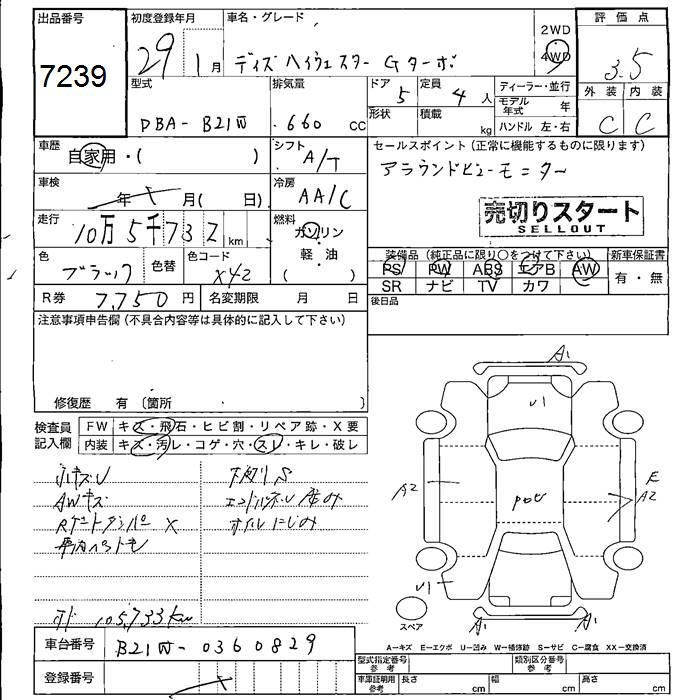 出品番号 初度登録年月 車名・グレード 評価点
7239 29年 1月 デイズ ハイウェスター Gターボ 2WD 4WD 3.5
型式 排気量 ドア 定員 ディーラー・並行 外装 内装
DBA- B21W 660 cc 5 4人 モデル年式 年 C C
形状 積載 kg ハンドル 左・右
車歴 自家用・( ) シフト A/T セールスポイント(正常に機能するものに限ります)
アラウンドビューモニター
車検 年 月( 日) 冷房 AA/C
売切りスタート
SELLOUT
走行 10万5千732 km 燃料 ガソリン
軽・油
( )
色 ブラック 色替 色コード X42
装備品(純正品に限り○をつけて下さい) 新車保証書
PS PW ABS エアB AW 有・無
SR ナビ TV カワ
R券 7,750円 名変期限 月 日 後日品
注意事項申告欄(不具合内容等は具体的に記入して下さい)
修復歴 有〔箇所 〕
検査員記入欄 FW キズ・飛石・ヒビ割・リペア跡・X要
内装 キズ・汚レ・コゲ・穴・スレ・キレ・破レ
小キズU 下回りS
AWキズ
Rゲートダンパー X オイルにじみ
走行 105,733km
A1
U1
A2
E
A2
U1
A1 A1
スペア
A-キズ E-エクボ U-凹み W-補修跡 S-サビ C-腐食 XX-交換済
車台番号 B21W-0360829
登録番号
型式指定番号 参考 類別区分番号 参考
車庫証明用 参考 長さ cm 幅 cm 高さ cm